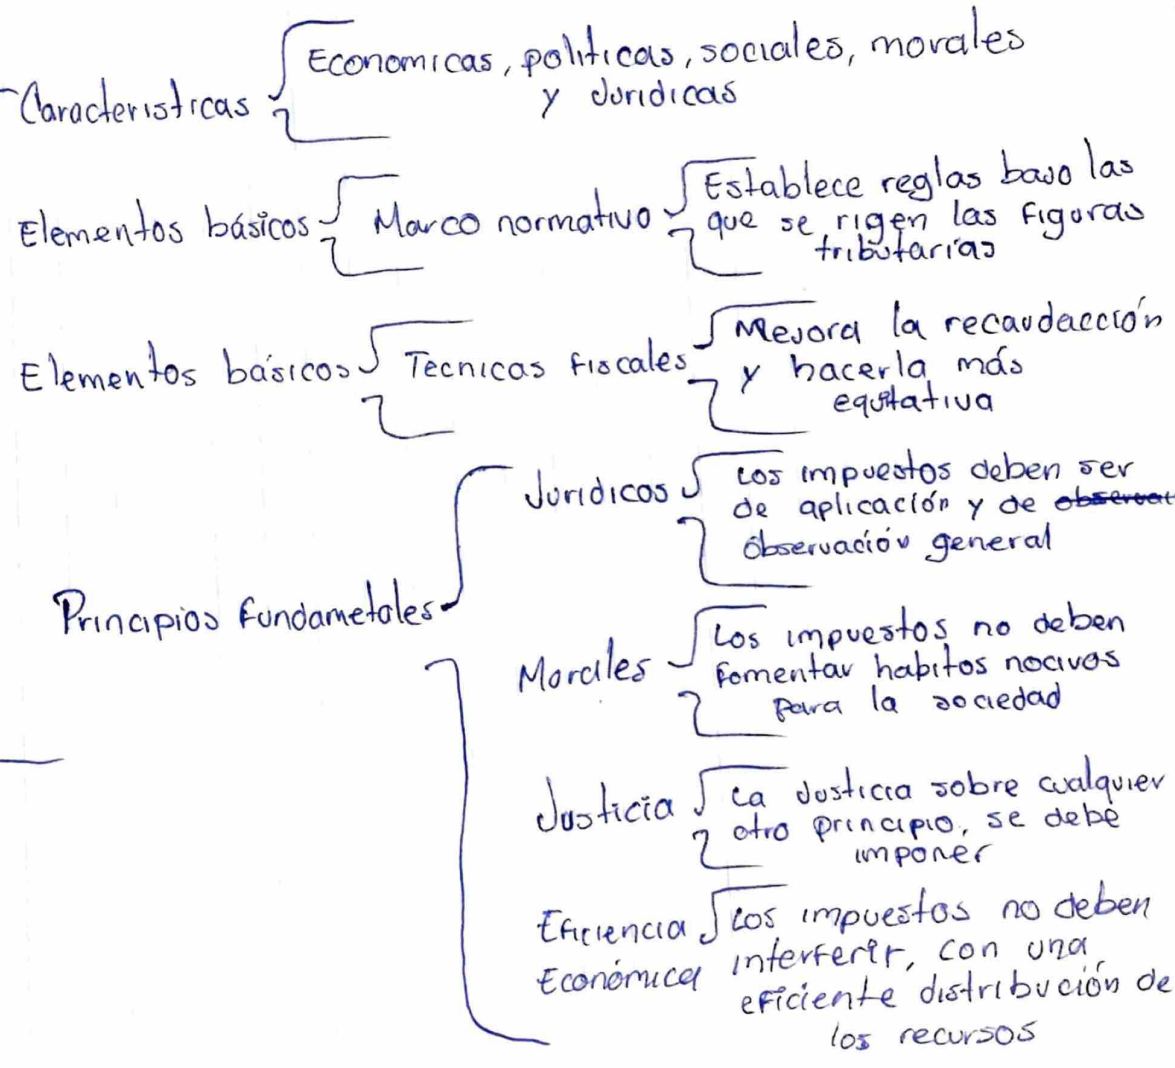 Caracteristicas
Economicas, politicas, sociales, morales
y Juridicas
Elementos básicos
Marco normativo
Establece reglas bajo las
que se rigen las figuras
tributarias
Elementos básicos
Tecnicas fiscales
Mejora la recaudacción
y hacerla más
equitativa
Principios fundametales
Juridicos
Los impuestos deben ser
de aplicación y de
observación general
Morales
Los impuestos no deben
fomentar habitos nocivos
para la sociedad
Justicia
La Justicia sobre cualquier
otro principio, se debe
imponer
Eficiencia
Económica
Los impuestos no deben
interferir, con una
eficiente distribución de
los recursos